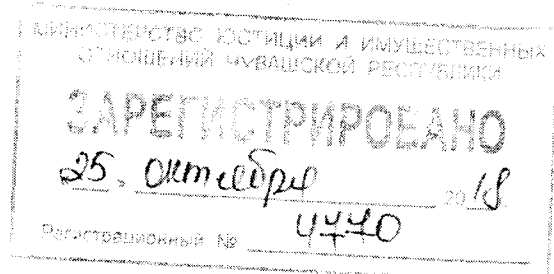 МИНИСТЕРСТВО ЮСТИЦИИ И ИМУЩЕСТВЕННЫХ
ОТНОШЕНИЙ ЧУВАШСКОЙ РЕСПУБЛИКИ
ЗАРЕГИСТРИРОВАНО
"25" октября 2018.
Регистрационный № 4770